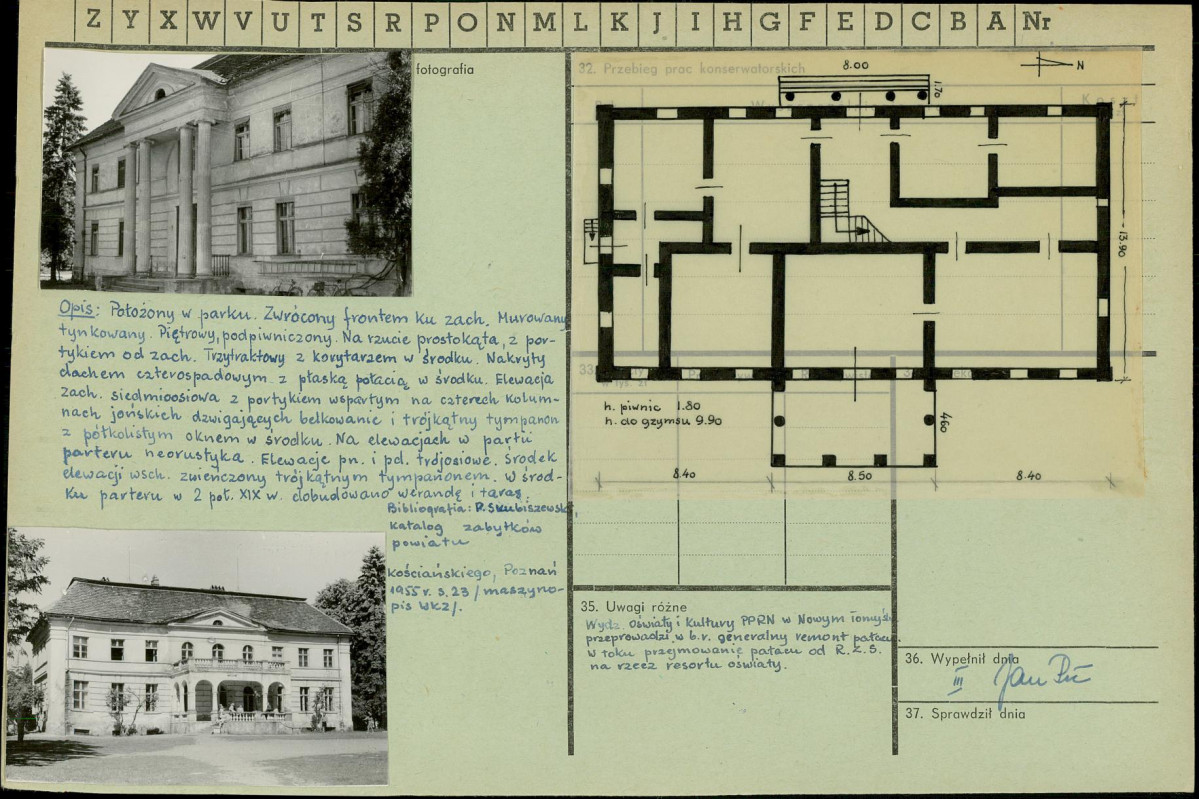 Z Y X W V U T S R P O N M L K J I H G F E D C B A Nr
fotografia
32. Przebieg prac konserwatorskich
8.00
1.70
N
13.90
h. piwnic 1.80
h. do gzymsu 9.90
460
8.40 8.50 8.40
Opis: Położony w parku. Zwrócony frontem ku zach. Murowany
tynkowany. Piętrowy, podpiwniczony. Na rzucie prostokąta, z por-
tykiem od zach. Trzytraktowy z korytarzem w środku. Nakryty
dachem czterospadowym z płaską połacią w środku. Elewacja
zach. siedmioosiowa z portykiem wspartym na czterech kolum-
nach jońskich dzwigających belkowanie i trójkątny tympanon
z półkolistym oknem w środku. Na elewacjach w partii
parteru neorustyka. Elewacje pn. i pd. trójosiowe. Środek
elewacji wsch. zwieńczony trójkątnym tympanonem. W środ-
ku parteru w 2 poł. XIX w. dobudowano werandę i taras.
Bibliografia: R. Skubiszewski,
katalog zabytków
powiatu
kościańskiego, Poznań
1955 r. s. 23 /maszyno-
pis WKZ/.
33.
w tys. zł
35. Uwagi różne
Wydz. oświaty i Kultury PPRN w Nowym Tomyślu
przeprowadzi w b.r. generalny remont pałacu.
w toku przejmowanie pałacu od R.Z.S.
na rzecz resortu oświaty.
36. Wypełnił dnia
III Jan
37. Sprawdził dnia